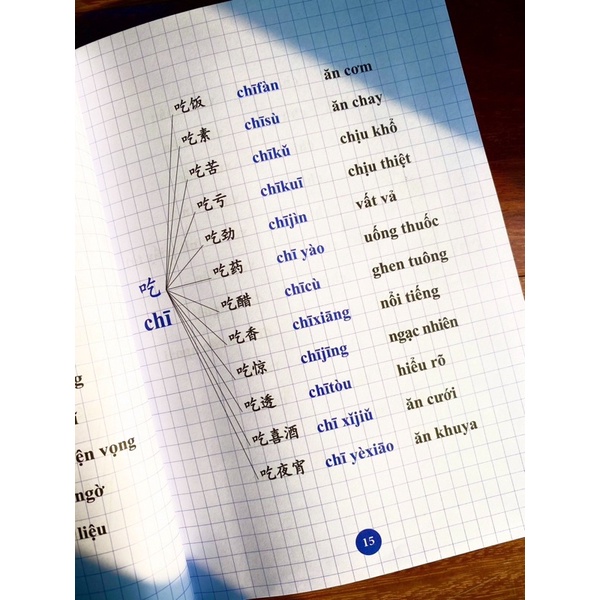 吃饭 chīfàn ăn cơm
吃素 chīsù ăn chay
吃苦 chīkǔ chịu khổ
吃亏 chīkuī chịu thiệt
吃劲 chījìn vất vả
吃药 chī yào uống thuốc
吃醋 chīcù ghen tuông
吃香 chīxiāng nổi tiếng
吃惊 chījīng ngạc nhiên
吃透 chītòu hiểu rõ
吃喜酒 chī xǐjiǔ ăn cưới
吃夜宵 chī yèxiāo ăn khuya
吃
chī
g
í
ện vọng
ngờ
liệu
15